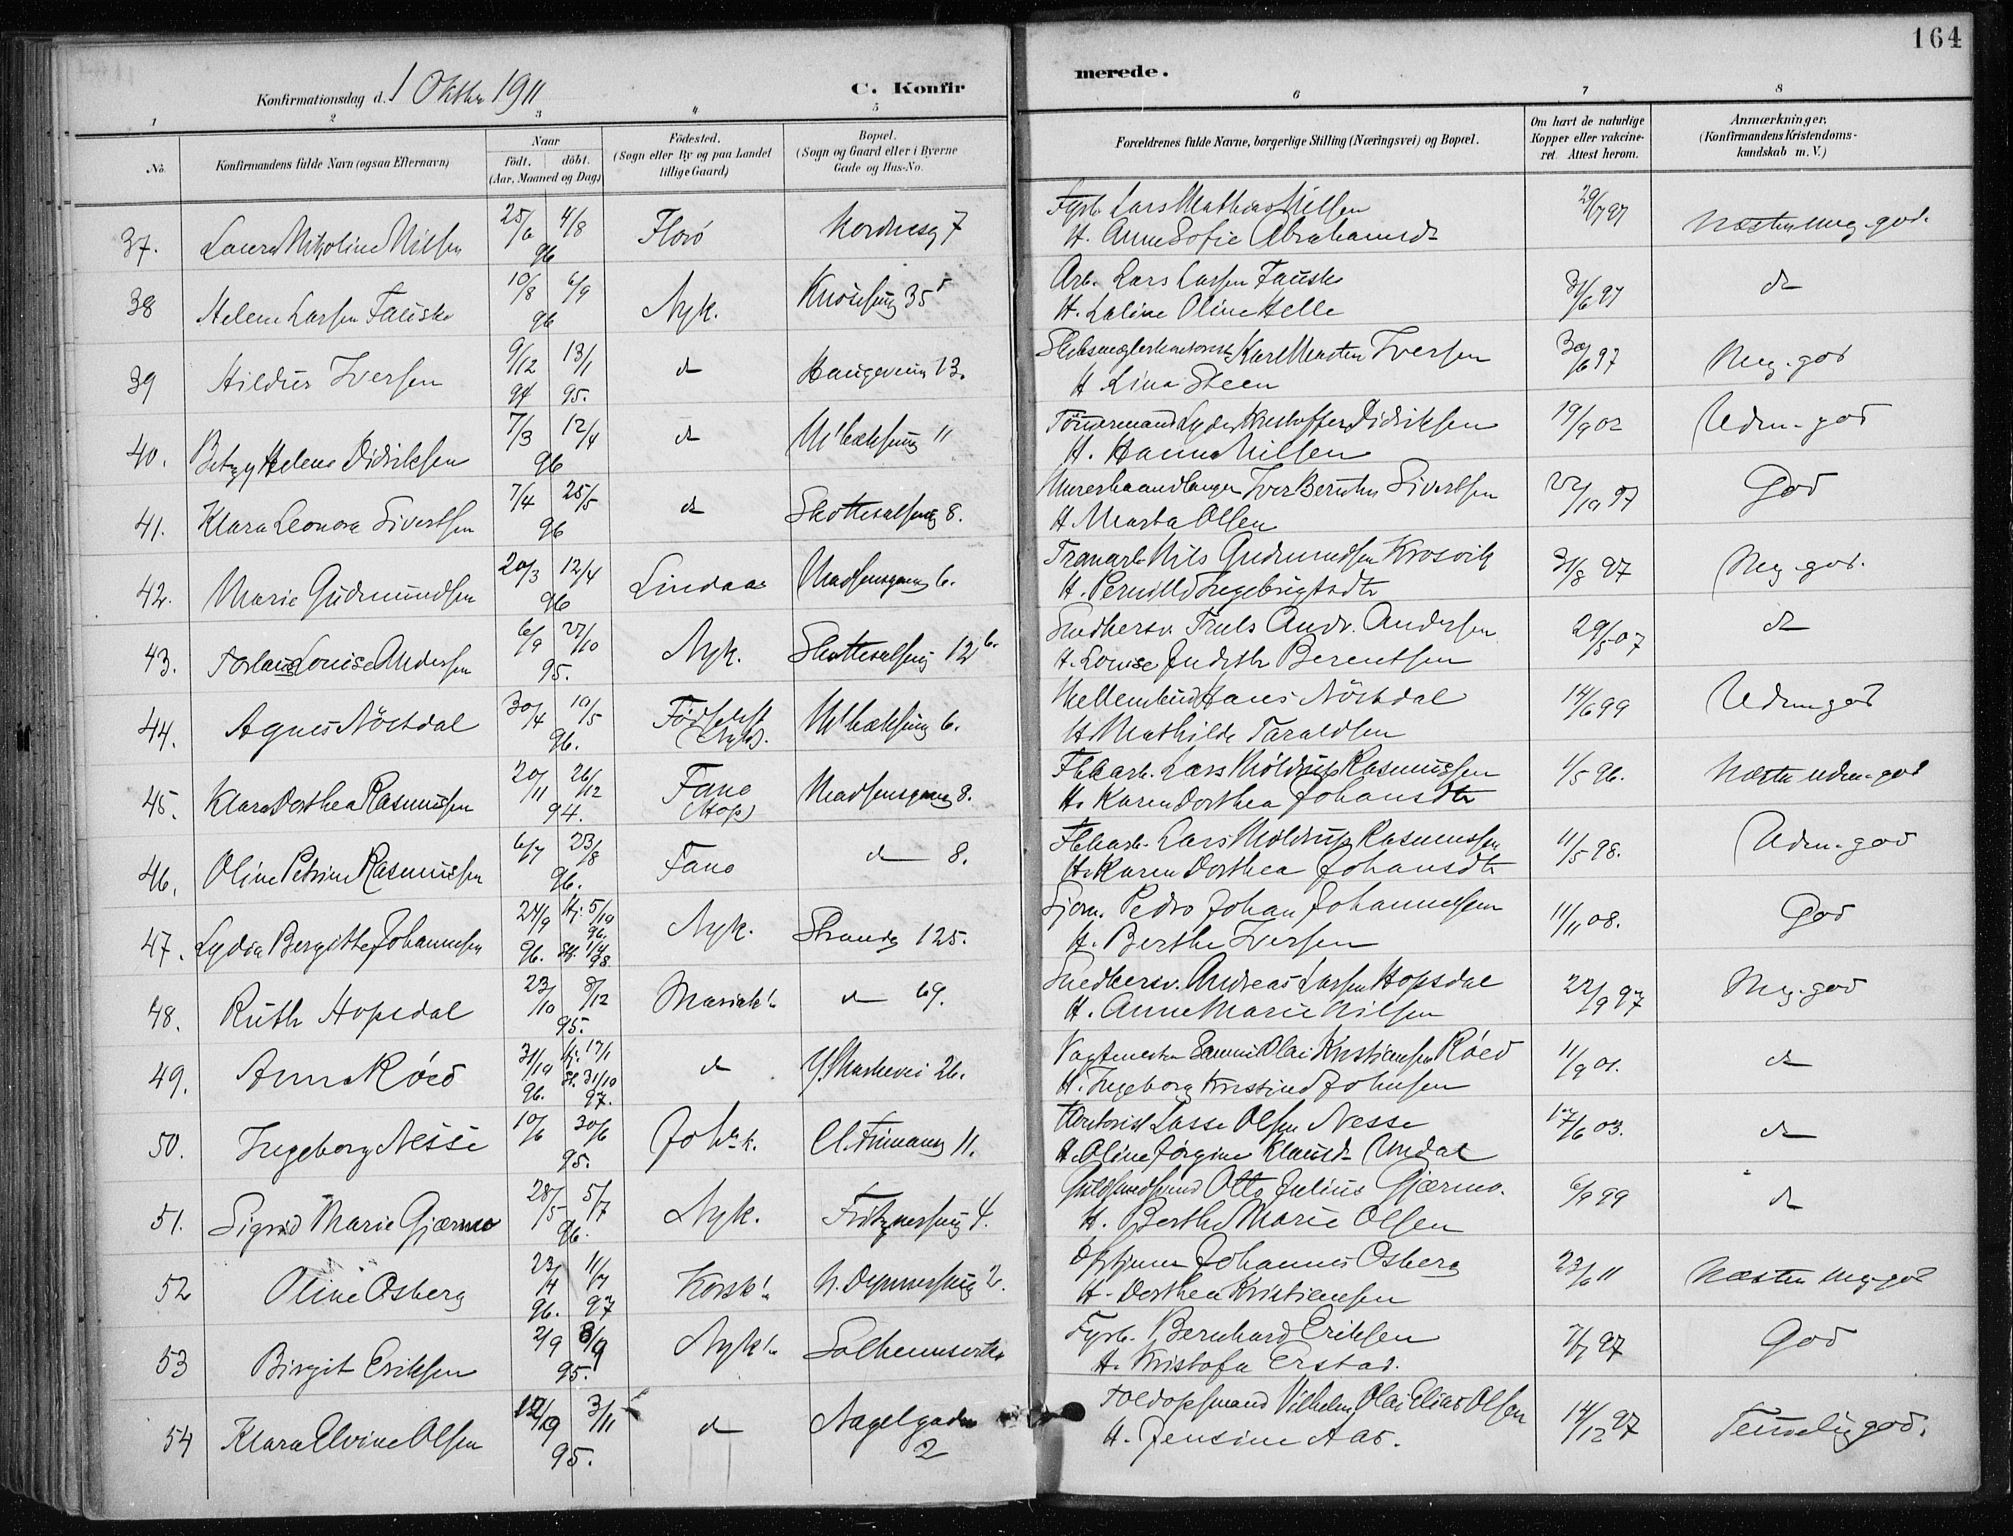 164
Konfirmationsdag d. 1 Oktbr 1911
C. Konfir
merede.
1 2 3 4 5 6 7 8
No.
Konfirmandens fulde Navn (ogsaa Efternavn)
Naar
födt. döbt.
(Aar, Maaned og Dag)
Födested.
(Sogn eller By og paa Landet
tillige Gaard)
Bopæl.
(Sogn og Gaard eller i Byerne
Gade og Hus-No.
Forældrenes fulde Navne, borgerlige Stilling (Næringsvei) og Bopæl.
Om havt de naturlige
Kopper eller vakcine-
ret Attest herom.
Anmærkninger.
(Konfirmandens Kristendoms-
kundskab m. V.)
37. Laura Nikoline Nilsen 25/6 4/8 96 Florö Nordnesg 7
Fyrb. Lars Mathias Nilsen 29/7 97 Næsten meg. god.
H. Anne Sofie Abrahamsdt
38 Helene Larsen Fauske 10/8 6/9 96 Nyk. 35
Arb. Lars Larsen Fauske 3/6 97 do
H. Laline Oline Helle
39 Hildur Iversen 9/12 94 13/1 95. do Haugeveien 13.
Karl Martin Iversen 30/6 97 Meg. god
H Lina Steen
40. Betzy Helene Didriksen 7/3 12/4 96 do 11
Tömmermand Lyder Kristoffer Didriksen 19/9 02 Udm. god
H. Hanna Nilsen
41. Klara Leonora Sivertsen 7/4 25/5 96 do Skottesalsmg 8.
Murerhaandlanger Iver Berntin Sivertsen 22/10 97 God
H Marta Olsen
42. Marie Gudmundsen 20/3 12/4 96 Lindaas Madsensgang 6.
Tranarb. Nils Gudmundsen Krosvik 31/8 97 Meg. god.
H. Pernille Ingebrigtsdtr
43. Louise Andersen 6/9 27/10 95. Nyk. Skottesalsmg 12 b.
Snedkersv. Truls Andr. Andersen 29/5 07 do
H. Louise Judith Berentsen
44. Agnes Nöstdal 30/4 10/5 96. Födselsst (Nyk). 6.
Mellembud Hans Nöstdal 14/6 99 Udm god
H Mathilde Taraldsen
45. Klara Dorthea Rasmussen 20/11 26/12 94. Fane (Hop) Madsensgang 8.
Fbkarb. Lars Möldrup Rasmussen 1/5 96. Næsten udm. god
H. Karen Dorthea Johansdtr
46. Oline Petrine Rasmussen 6/7 23/8 96. Fane do 8.
Fbkarb. Lars Möldrup Rasmussen 11/5 98. Udm. god
H. Karen Dorthea Johansdtr
47. Lydia Bergitte Johannesen 24/9 96. Hj. 5/10 96. St. 1/4 98. Nyk. Strandg 125.
Sjöm. Pedro Johan Johannesen 11/11 08. God
H. Berthe Iversen
48. Ruth Hopsdal 23/10 8/12 95. Mariak. do 69.
Snedkersv. Andreas Larsen Hopsdal 22/9 97 Meg. god
H. Anne Marie Nilsen
49. Anna Röed 31/10 96. Hj. 17/1 St. 31/10 97. do Y. Markevei 26.
Vagtmester Olai Kristiansen Röed 11/9 01. do
H. Ingeborg Kristine Johnsen
50. Ingeborg Nesse 10/6 30/6 95. Johs. k. 11.
Kontorist Lasse Olsen Nesse 17/6 03. do
H. Oline Jörgine Klausdt Undal
51. Sigrid Marie Gjærmo 28/5 5/7 96. Nyk. Fritznersmg 4.
Guldsmedsvend Otto Julius Gjærmo. 6/9 99 do
H. Berthe Marie Olsen
52 Oline Osberg 23/4 96. 11/7 97 Korsk. N. Dynnersmg 2.
Johannes Osberg 23/6 11 Næsten meg. god
H. Dorthea Kristiansen
53 Birgit Eriksen 2/9 8/9 95. Nyk. Solheimsviken
Fyrb. Bernhard Eriksen 7/7 97 God
H. Kristofa Erstad.
54 Klara Elvine Olsen 12/9 3/11 95. do Nagelgaden 2
Toldopsmand Vilhelm Olai Elias Olsen 14/12 97 Temmelig god.
H. Jensine Aas.